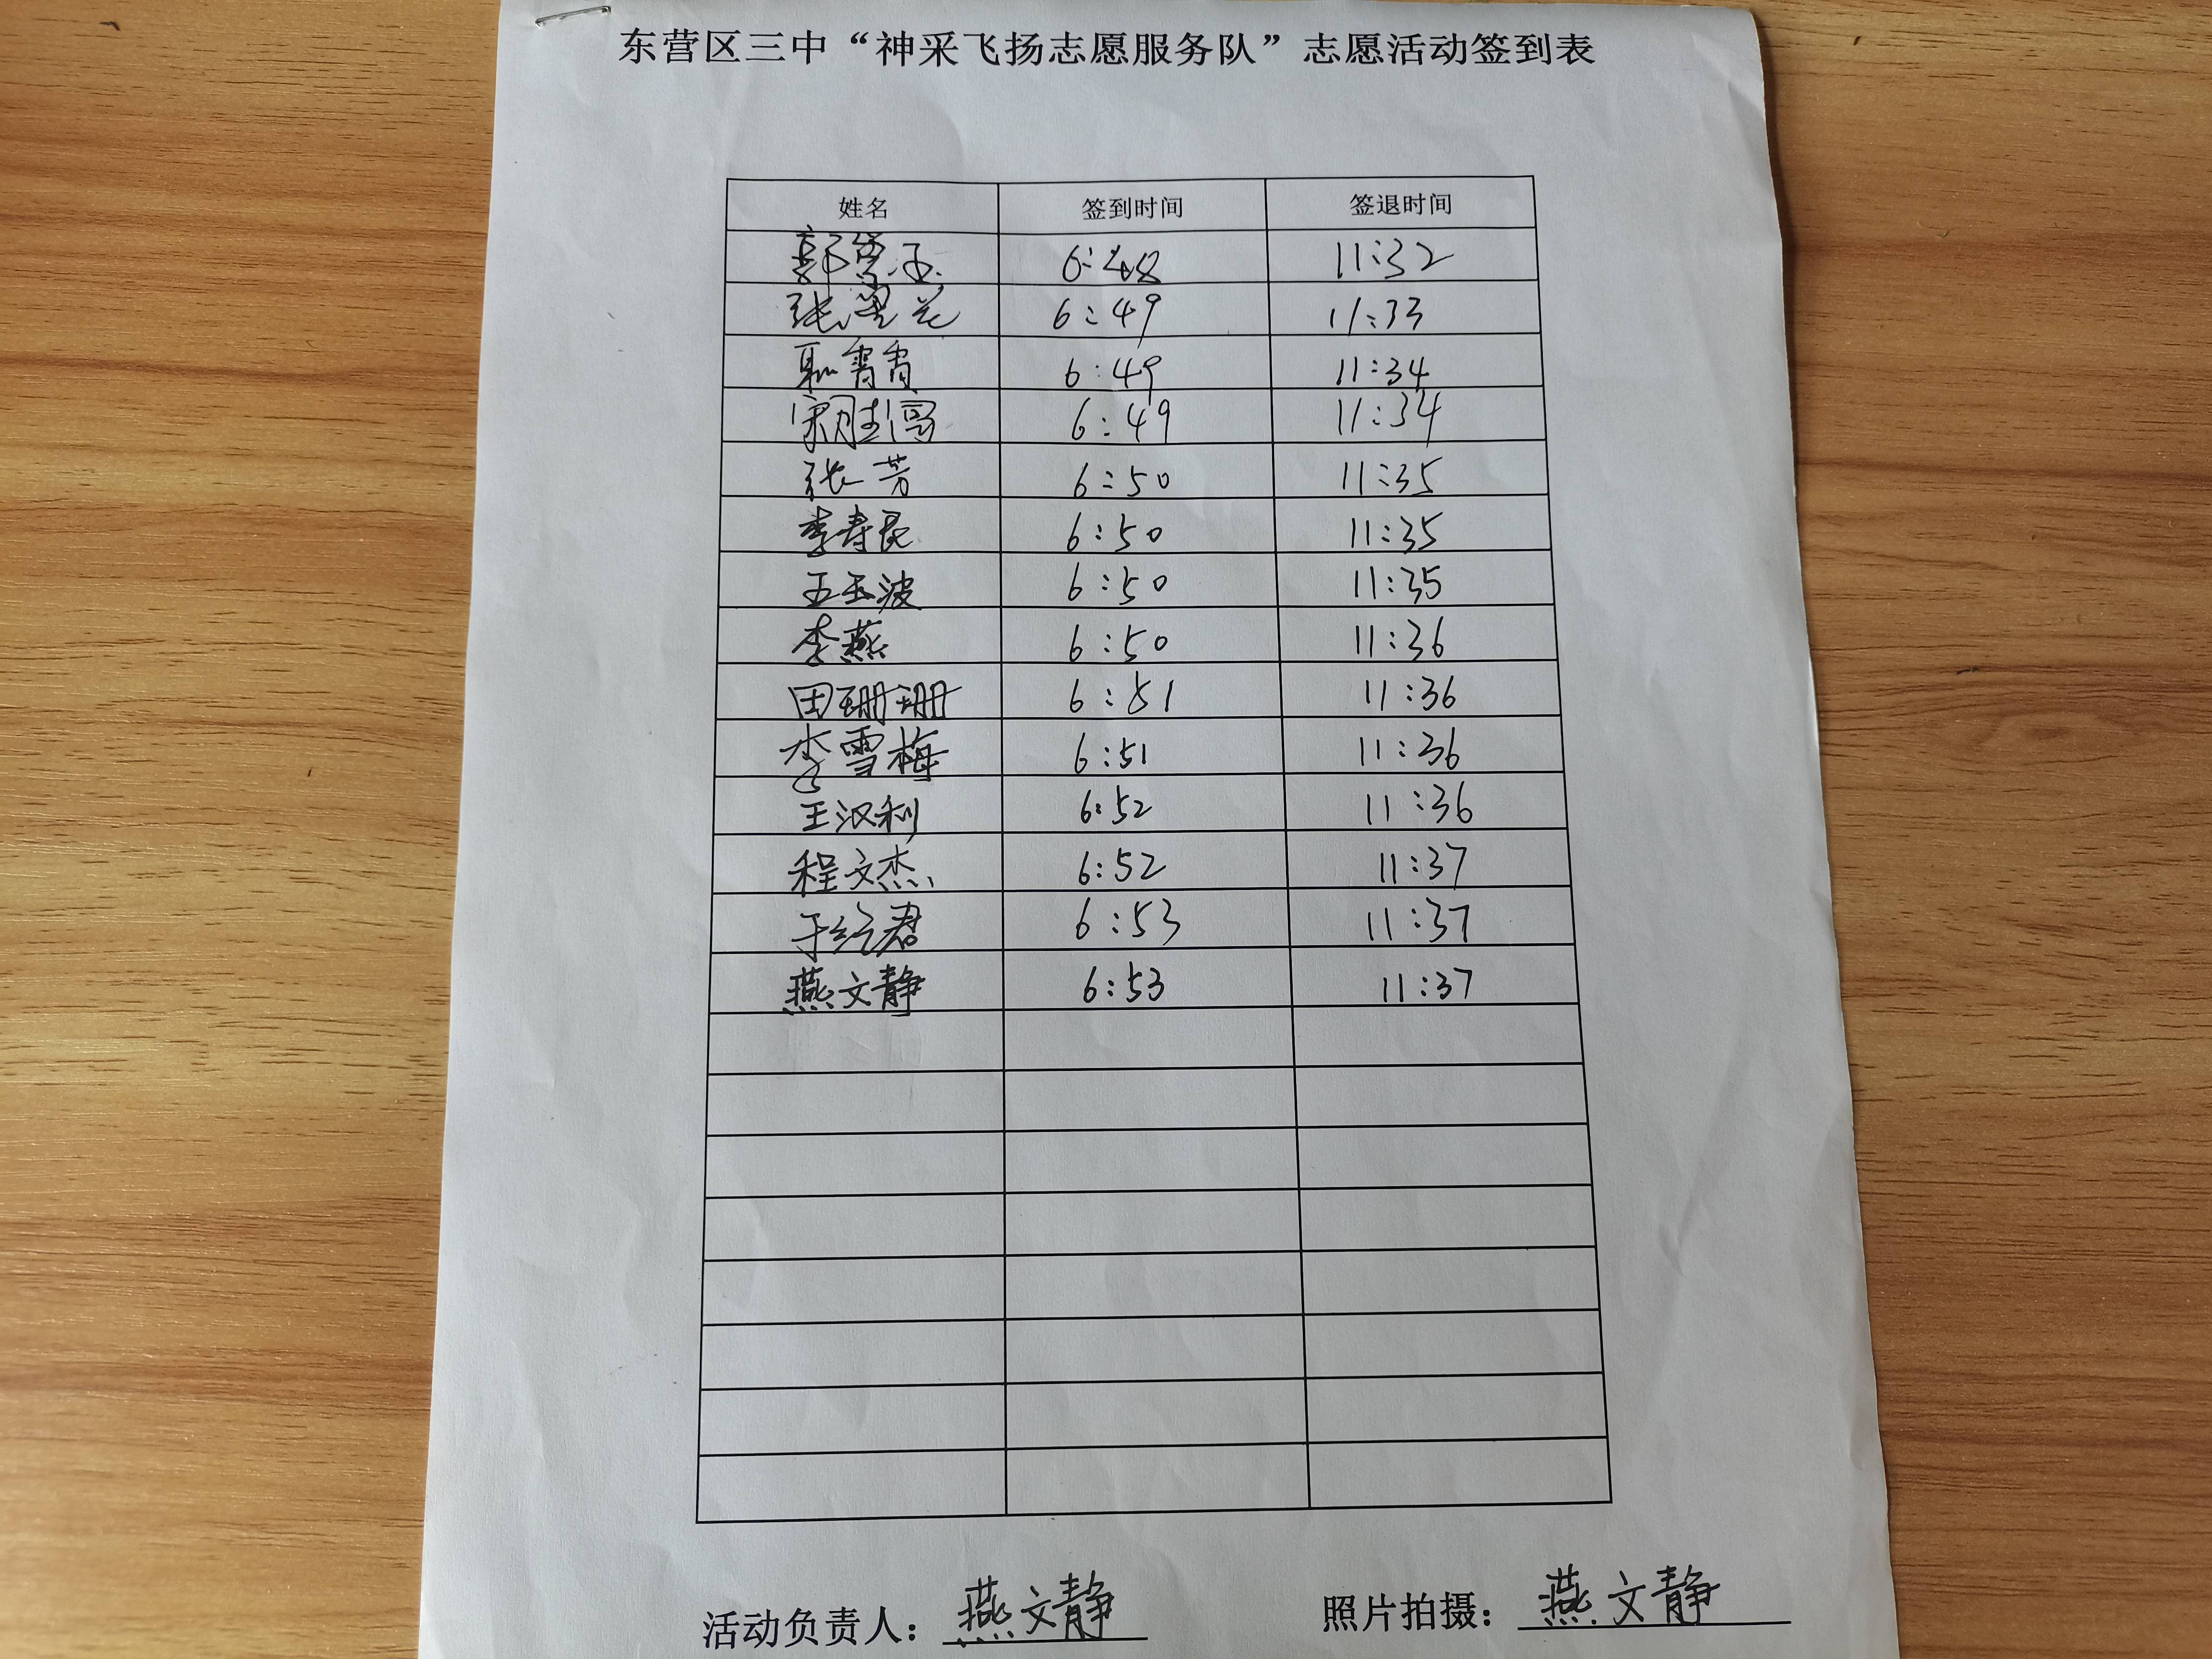 东营区三中“神采飞扬志愿服务队”志愿活动签到表
姓名 签到时间 签退时间
郭 玉 6:48 11:32
张翠兰 6:49 11:33
耿霄霄 6:49 11:34
宋胜 6:49 11:34
张芳 6:50 11:35
李寿民 6:50 11:35
王玉波 6:50 11:35
李燕 6:50 11:36
田珊珊 6:51 11:36
李雪梅 6:51 11:36
王汉利 6:52 11:36
程文杰 6:52 11:37
于红君 6:53 11:37
燕文静 6:53 11:37
活动负责人：燕文静 照片拍摄：燕文静